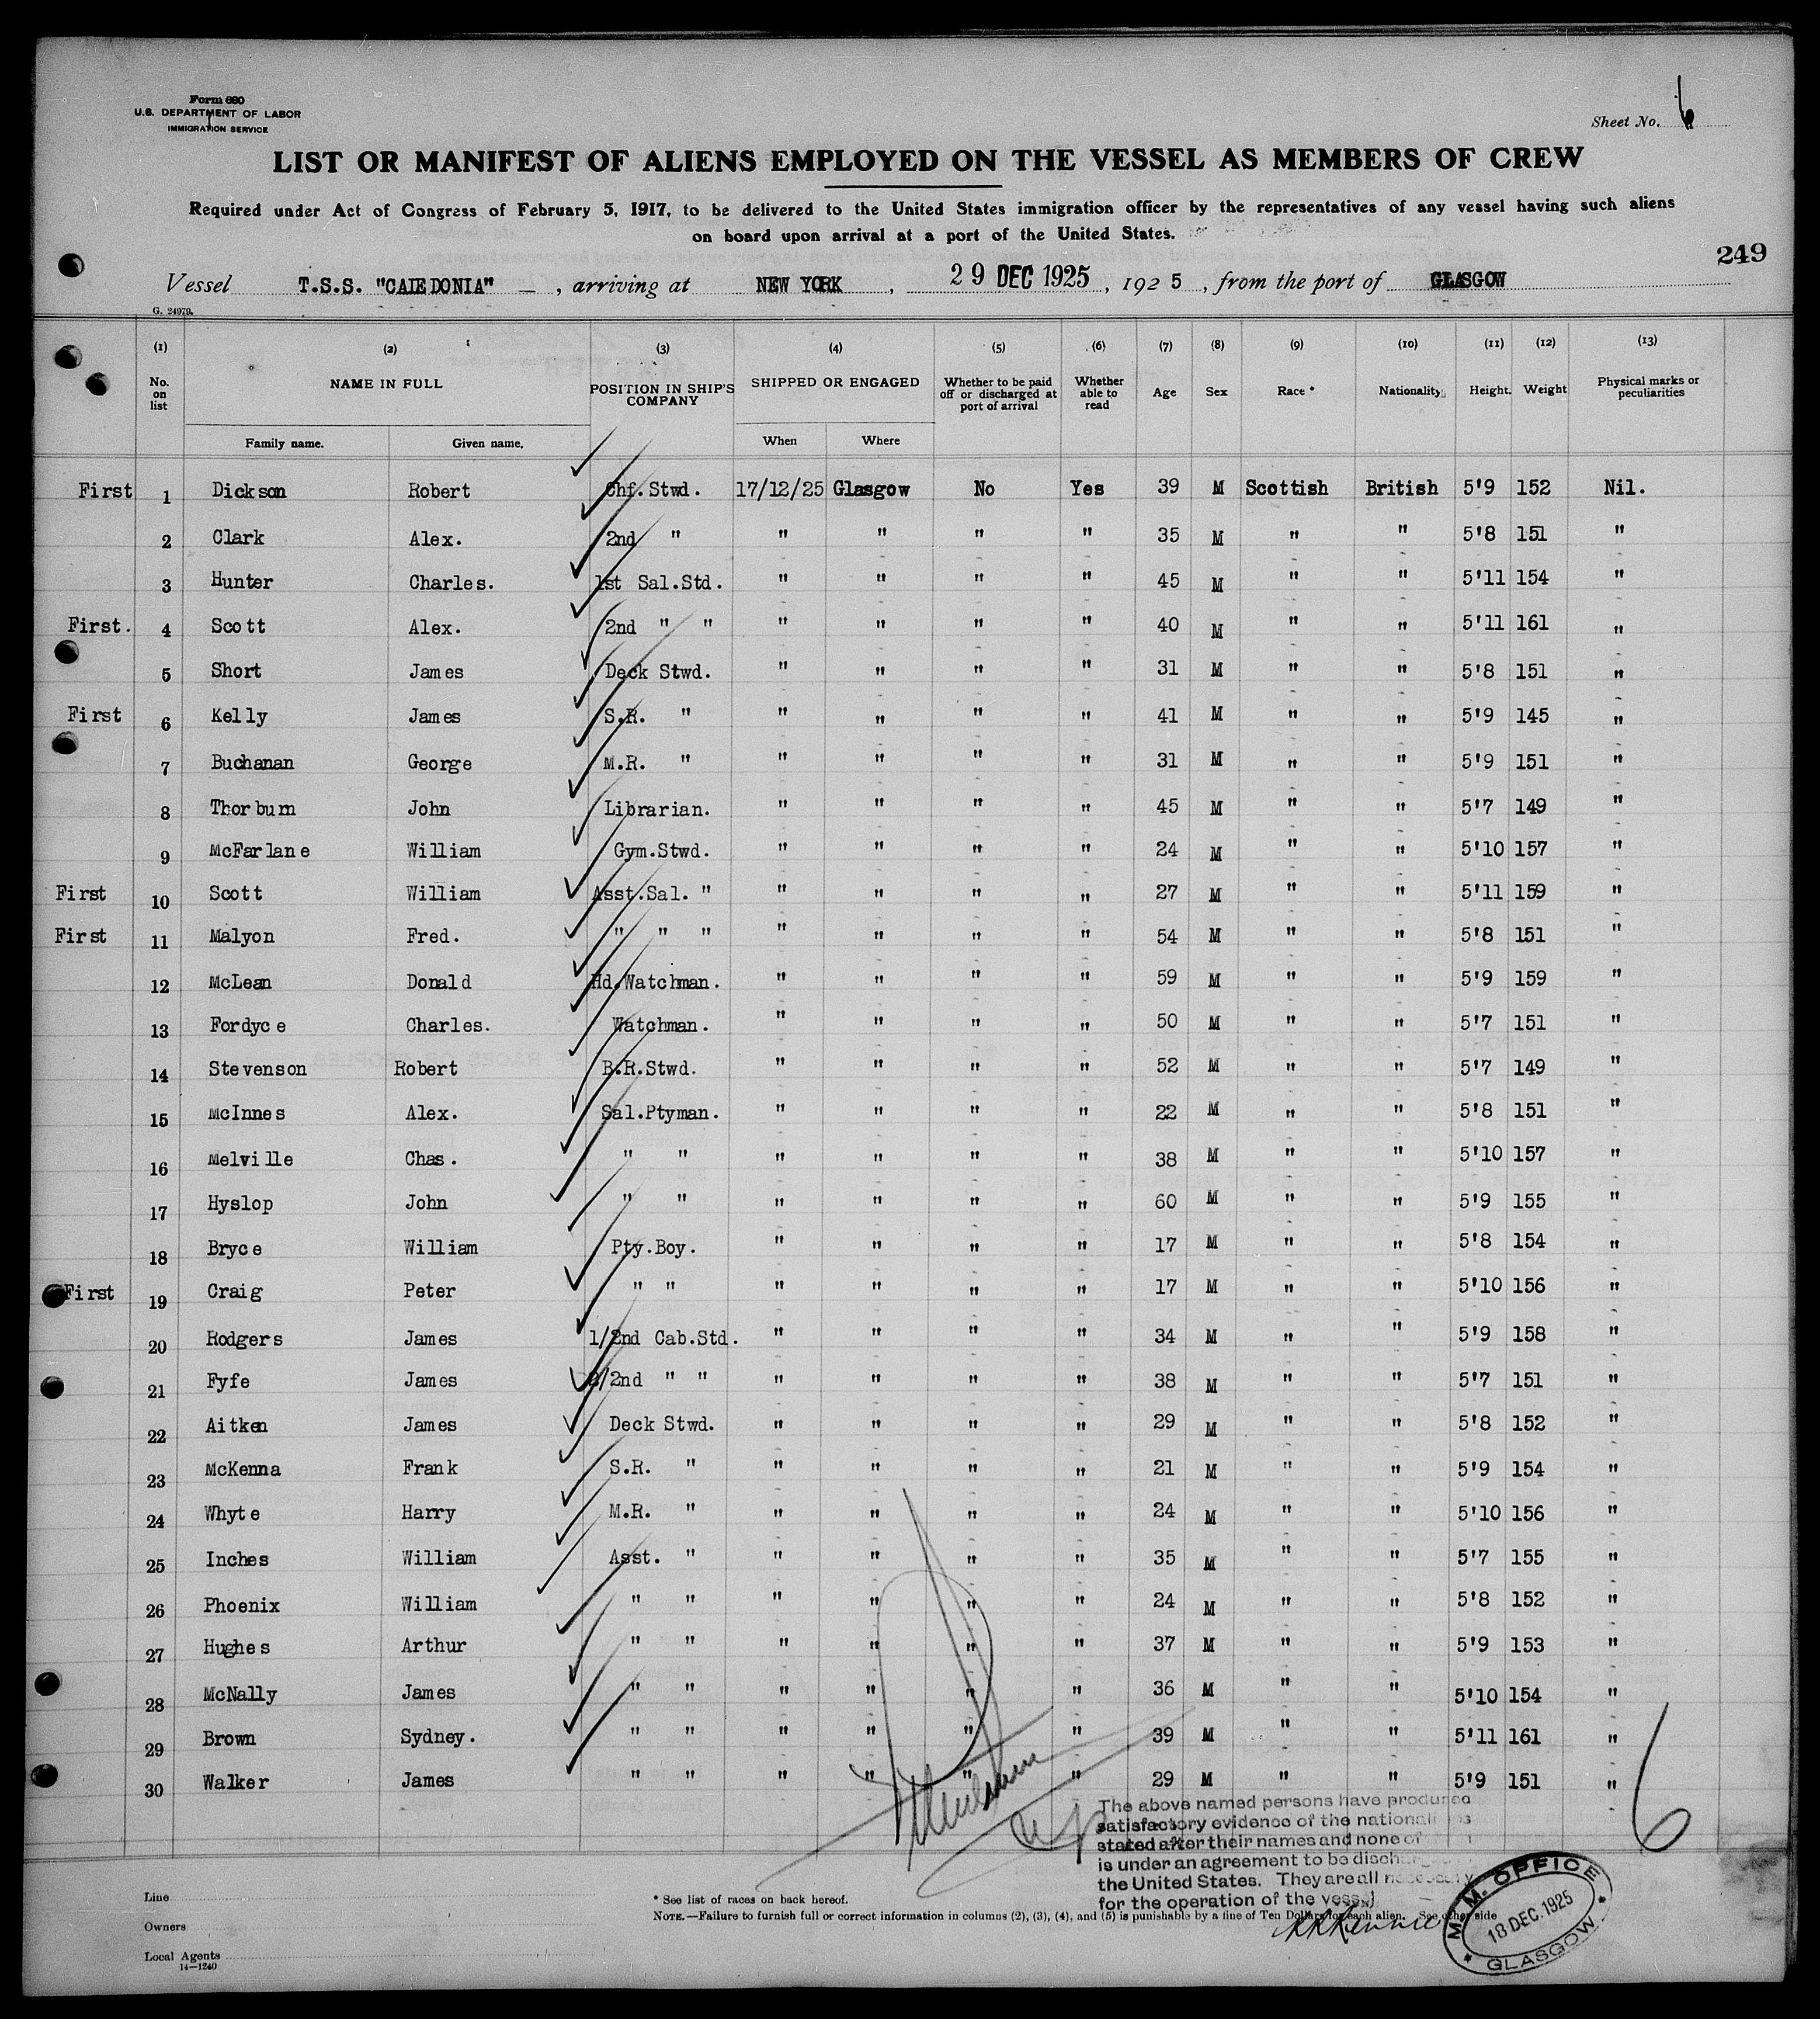 Form 680
U.S. DEPARTMENT OF LABOR
IMMIGRATION SERVICE
Sheet No. 6
LIST OR MANIFEST OF ALIENS EMPLOYED ON THE VESSEL AS MEMBERS OF CREW
Required under Act of Congress of February 5, 1917, to be delivered to the United States immigration officer by the representatives of any vessel having such aliens
on board upon arrival at a port of the United States.
249
Vessel T.S.S. "CALEDONIA" , arriving at NEW YORK , 29 DEC 1925 , 1925 , from the port of GLASGOW
G. 24979.
(1) (2) (3) (4) (5) (6) (7) (8) (9) (10) (11) (12) (13)
No. on list NAME IN FULL POSITION IN SHIP'S COMPANY SHIPPED OR ENGAGED Whether to be paid off or discharged at port of arrival Whether able to read Age Sex Race * Nationality Height. Weight Physical marks or peculiarities
Family name. Given name. When Where
First 1 Dickson Robert Chf.Stwd. 17/12/25 Glasgow No Yes 39 M Scottish British 5'9 152 Nil.
2 Clark Alex. 2nd " " " " " 35 M " " 5'8 151 "
3 Hunter Charles. 1st Sal.Std. " " " " 45 M " " 5'11 154 "
First. 4 Scott Alex. 2nd " " " " " " 40 M " " 5'11 161 "
5 Short James Deck Stwd. " " " " 31 M " " 5'8 151 "
First 6 Kelly James S.R. " " " " " 41 M " " 5'9 145 "
7 Buchanan George M.R. " " " " " 31 M " " 5'9 151 "
8 Thorburn John Librarian. " " " " 45 M " " 5'7 149 "
9 McFarlane William Gym.Stwd. " " " " 24 M " " 5'10 157 "
First 10 Scott William Asst.Sal. " " " " " 27 M " " 5'11 159 "
First 11 Malyon Fred. " " " " " " " 54 M " " 5'8 151 "
12 McLean Donald Hd.Watchman. " " " " 59 M " " 5'9 159 "
13 Fordyce Charles. Watchman. " " " " 50 M " " 5'7 151 "
14 Stevenson Robert B.R.Stwd. " " " " 52 M " " 5'7 149 "
15 McInnes Alex. Sal.Ptyman. " " " " 22 M " " 5'8 151 "
16 Melville Chas. " " " " " " 38 M " " 5'10 157 "
17 Hyslop John " " " " " " 60 M " " 5'9 155 "
18 Bryce William Pty.Boy. " " " " 17 M " " 5'8 154 "
First 19 Craig Peter " " " " " " 17 M " " 5'10 156 "
20 Rodgers James 1/2nd Cab.Std. " " " " 34 M " " 5'9 158 "
21 Fyfe James 2/2nd " " " " " " 38 M " " 5'7 151 "
22 Aitken James Deck Stwd. " " " " 29 M " " 5'8 152 "
23 McKenna Frank S.R. " " " " " 21 M " " 5'9 154 "
24 Whyte Harry M.R. " " " " " 24 M " " 5'10 156 "
25 Inches William Asst. " " " " " 35 M " " 5'7 155 "
26 Phoenix William " " " " " " 24 M " " 5'8 152 "
27 Hughes Arthur " " " " " " 37 M " " 5'9 153 "
28 McNally James " " " " " " 36 M " " 5'10 154 "
29 Brown Sydney. " " " " " " 39 M " " 5'11 161 "
30 Walker James " " " " " " 29 M " " 5'9 151 "
6
The above named persons have produced
satisfactory evidence of the
stated after their names and none of
is under an agreement to be
the United States. They are all necessary
for the operation of the vessel
Line
Owners
Local Agents
14—1240
* See list of races on back hereof.
NOTE.—Failure to furnish full or correct information in columns (2), (3), (4), and (5) is punishable by a fine of Ten Dollars for each alien. See other side
M. M. OFFICE
18 DEC. 1925
GLASGOW